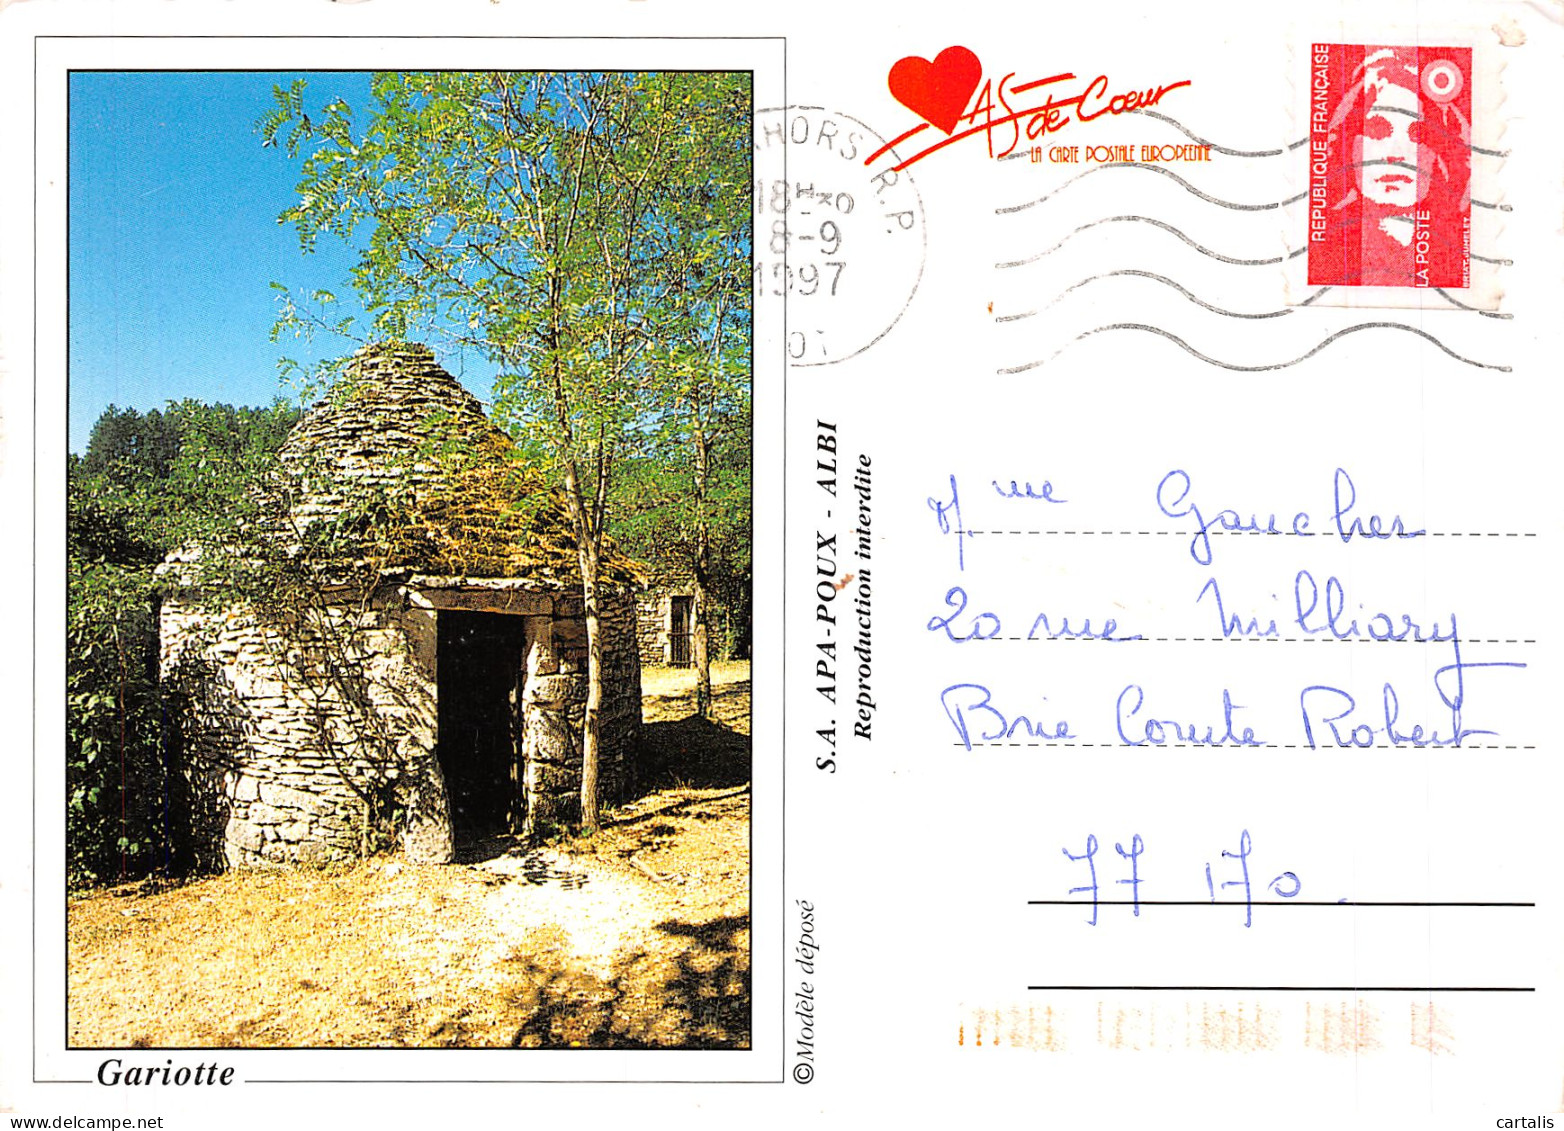 AS de Cœur
LA CARTE POSTALE EUROPEENNE
REPUBLIQUE FRANÇAISE
LA POSTE
AHORS R.P.
18H
8-9
1997
LOT
Mme Gaucher
20 rue Milliary
Brie Comte Robert
77 170.
S.A. APA-POUX - ALBI
Reproduction interdite
©Modèle déposé
Gariotte
cartalis
www.delcampe.net